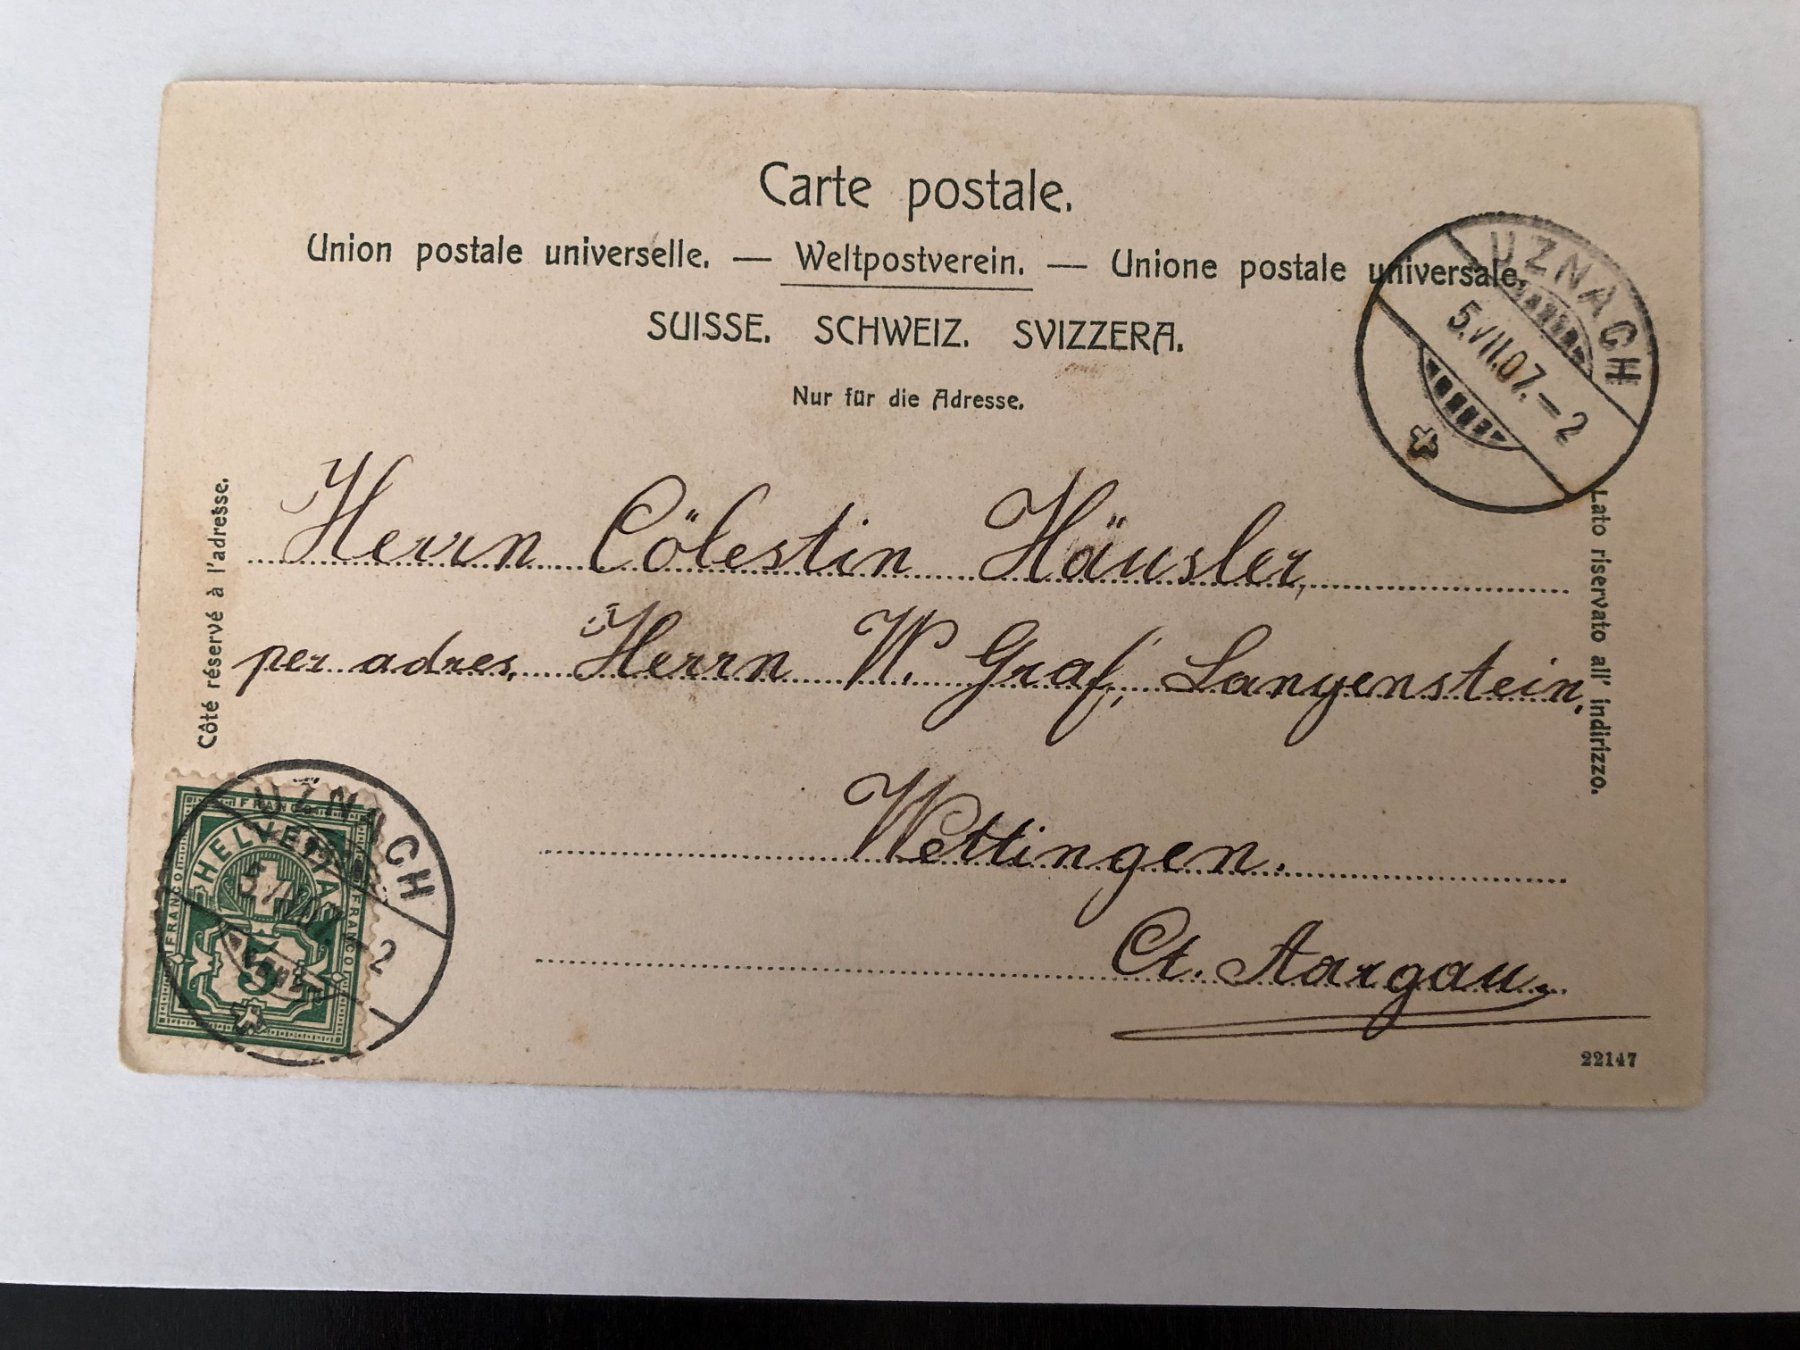 Carte postale.
Union postale universelle. — Weltpostverein. — Unione postale universale.
SUISSE. SCHWEIZ. SVIZZERA.
Nur für die Adresse.
UZNACH
5.VII.07.–2
Côté réservé à l'adresse.
Lato riservato all' indirizzo.
Herrn Cölestin Häusler,
per adres. Herrn W. Graf, Langenstein,
Wettingen.
Ct. Aargau.
UZNACH
5.VII.07.–2
FRANCO
FRANCO
FRANCO
HELVETIA
5
22147